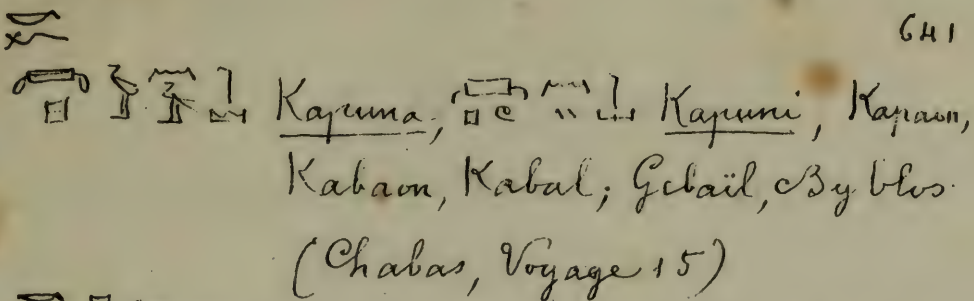 641
Kapuna, Kapuni, Kapaon,
Kabaon, Kabal; Gebaïl, Byblos.
(Chabas, Voyage 15)